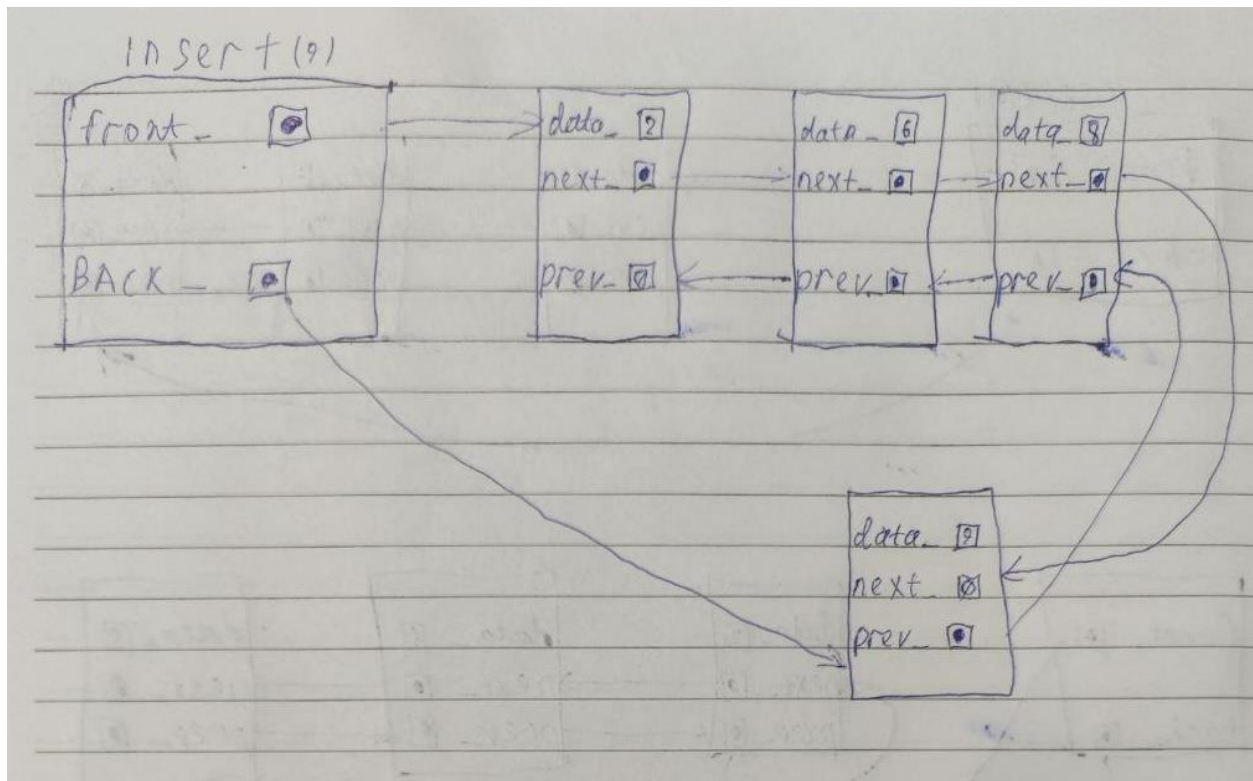 Insert(9)
front_
data_ 2
next_
prev_
data_ 6
next_
prev_
data_ 8
next_
prev_
BACK_
data_ 9
next_
prev_